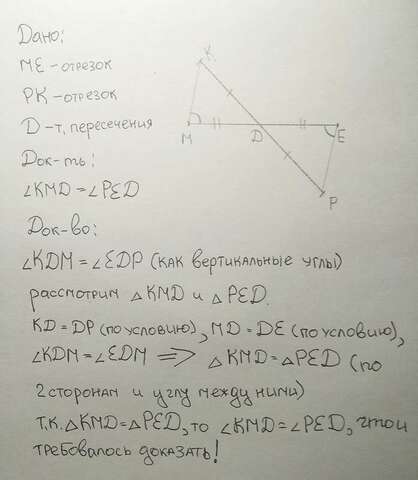 Дано:
ME - отрезок
PK - отрезок
D - т. пересечения
Док-ть:
∠KMD = ∠PED
Док-во:
∠KDM = ∠EDP (как вертикальные углы)
рассмотрим △KMD и △PED.
KD = DP (по условию), MD = DE (по условию),
∠KDM = ∠EDM => △KMD = △PED (по
2 сторонам и углу между ними)
т.к. △KMD = △PED, то ∠KMD = ∠PED, что и
требовалось доказать!
K
M
D
E
P